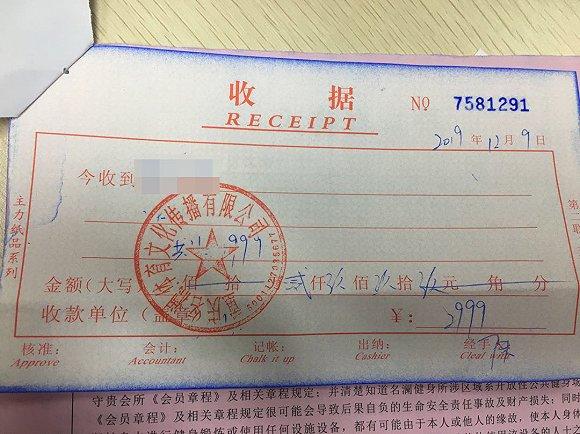 收据 NO 7581291
RECEIPT
2019年12月9日
今收到
体育文化传播有限公司
金额(大写) 佰 拾 贰仟玖佰玖拾玖元 角 分
收款单位(盖章) ¥: 2999
核准: 会计: 记帐: 出纳: 经手
Approve Accountant Chalk it up Cashier Cleal
主力纸品系列
第
联
守贵会所《会员章程》及相关章程规定;并清楚知道名澜健身所涉区域系开放性公共健身场
《会员章程》及相关章程规定很可能会导致后果自负的生命安全责任事故及财产损失;同时
都有可能由于本人或他人的缘故,使本人身